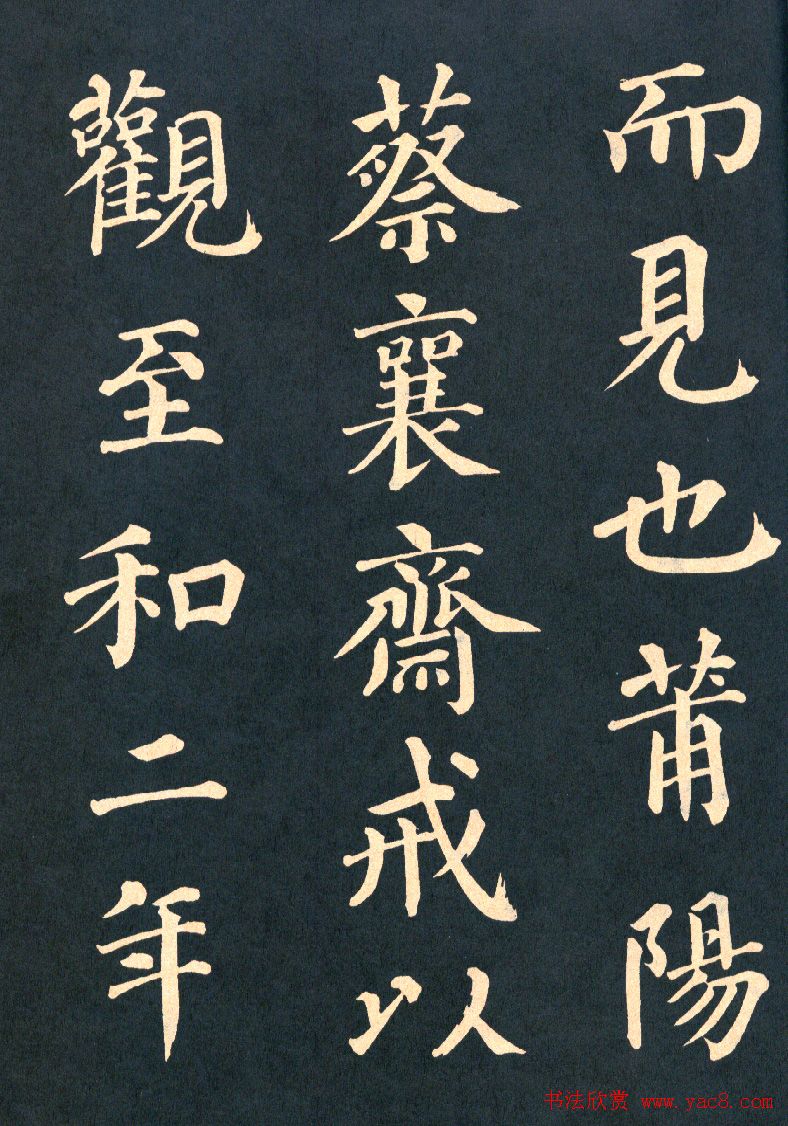 而見也莆陽
蔡襄齋戒以
觀至和二年
书法欣赏 www.yac8.com